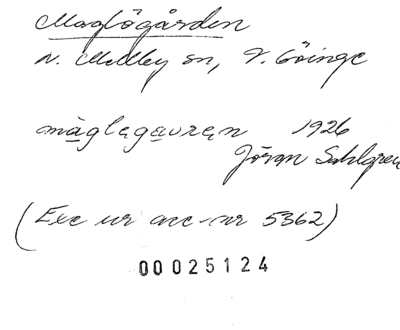 Maglögården
N. Mellby sn, V. Göinge
màglagauran 1926
Jöran Sahlgren
(Exc ur acc-nr 5362)
00025124